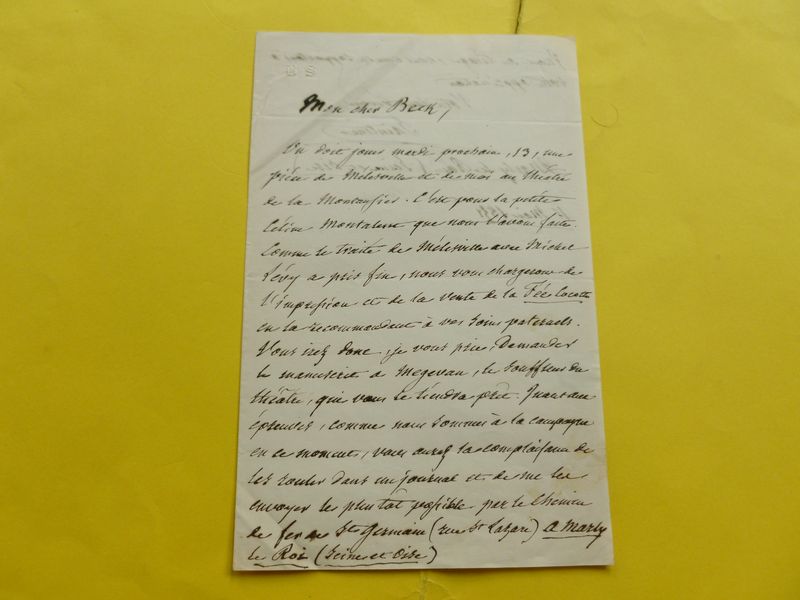 Mon cher Beck,
On doit jouer mardi prochain, 13, une
pièce de Mélesville et de moi au théâtre
de la Montansier. C'est pour la petite
Céline Montaland que nous l'avons faite.
Comme le traité de Mélesville avec Michel
Lévy a pris fin, nous vous chargerons de
l'impression et de la vente de la Fée Cocotte
en la recommandant à vos soins paternels.
Vous irez donc, je vous prie, demander
le manuscrit à Mégevan, le souffleur du
théâtre, qui vous le tiendra prêt. Quant aux
épreuves, comme nous sommes à la campagne
en ce moment, vous aurez la complaisance de
les rouler dans un journal et de me les
envoyer le plutôt possible par le chemin
de fer de St Germain (rue St Lazare) à Marly
le Roi (Seine et Oise)